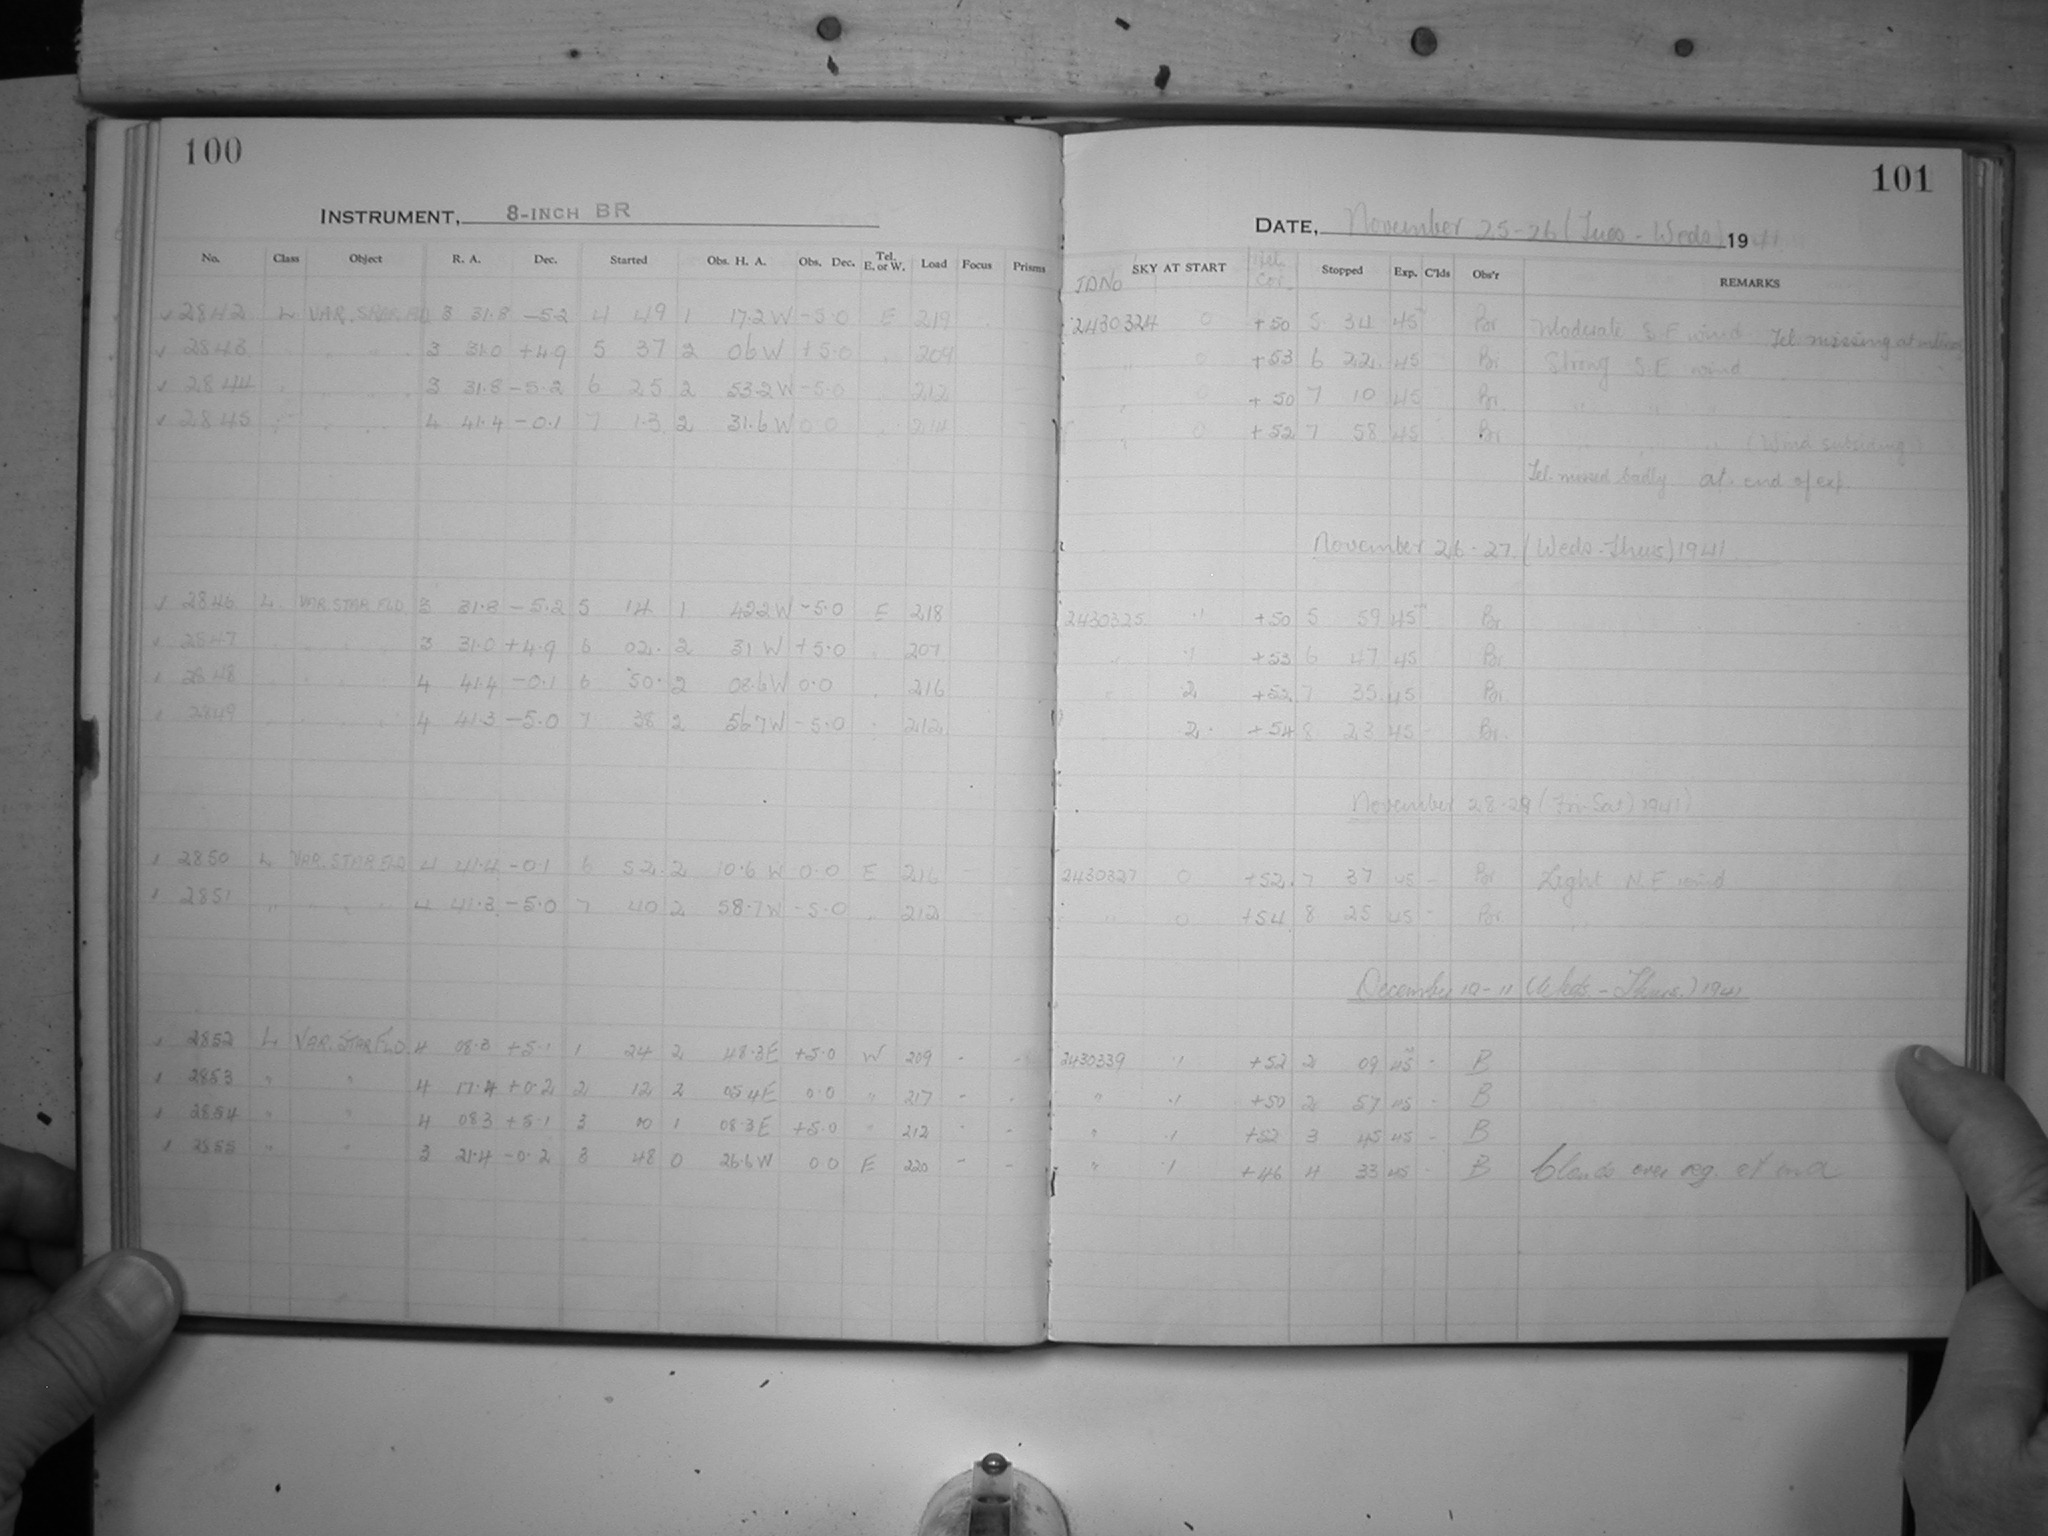 100
INSTRUMENT, 8-INCH BR
No. Class Object R. A. Dec. Started Obs. H. A. Obs. Dec. Tel. E. or W. Load Focus Prisms
2842 L VAR. STAR FLD 3 31.8 -5.2 4 49 1 17.2 W -5.0 E 219
2843 " " " 3 31.0 +4.9 5 37 2 06 W +5.0 " 209
2844 " " " 3 31.8 -5.2 6 25 2 53.2 W -5.0 " 212
2845 " " " 4 41.4 -0.1 7 13 2 31.6 W 0.0 " 214
2846 L VAR. STAR FLD 3 31.8 -5.2 5 14 1 42.2 W -5.0 E 218
2847 " " " 3 31.0 +4.9 6 02 2 31 W +5.0 " 207
2848 " " " 4 41.4 -0.1 6 50 2 08.6 W 0.0 " 216
2849 " " " 4 41.3 -5.0 7 38 2 56.7 W -5.0 " 212
2850 L VAR. STAR FLD 4 41.4 -0.1 6 52 2 10.6 W 0.0 E 216 -
2851 " " " 4 41.3 -5.0 7 40 2 58.7 W -5.0 " 212
2852 L VAR. STAR FLD 4 08.3 +5.1 1 24 2 48.3 E +5.0 W 209 - -
2853 " " 4 17.4 +0.2 2 12 2 05.4 E 0.0 " 217 - -
2854 " " 4 08.3 +5.1 3 00 1 08.3 E +5.0 " 212 - -
2855 " " 3 21.4 -0.2 3 48 0 26.6 W 0.0 E 220 - -
101
DATE, November 25-26 (Tues - Weds) 1941
JDNo SKY AT START Hel. Cor. Stopped Exp. C'lds Obs'r REMARKS
2430324 0 +50 5 34 45 Br Moderate S.E wind Tel. missing at
" 0 +53 6 22 45 Br Strong S.E wind
" 0 +50 7 10 45 Br " " "
" 0 +52 7 58 45 Br " " " (Wind subsiding)
Tel. missed badly at end of exp.
November 26-27 (Weds-Thurs) 1941
2430325 .1 +50 5 59 45 Br
" .1 +53 6 47 45 Br
" 2 +52 7 35 45 Br
" 2 +54 8 23 45 Br
November 28-29 (Fri-Sat) 1941
2430327 0 +52 7 37 45 - Br Light N.E wind
" 0 +54 8 25 45 - Br "
December 10-11 (Weds. - Thurs.) 1941
2430339 .1 +52 2 09 45 - B
" .1 +50 2 57 45 - B
" .1 +52 3 45 45 - B
" .1 +46 4 33 45 - B Clouds over reg. at end